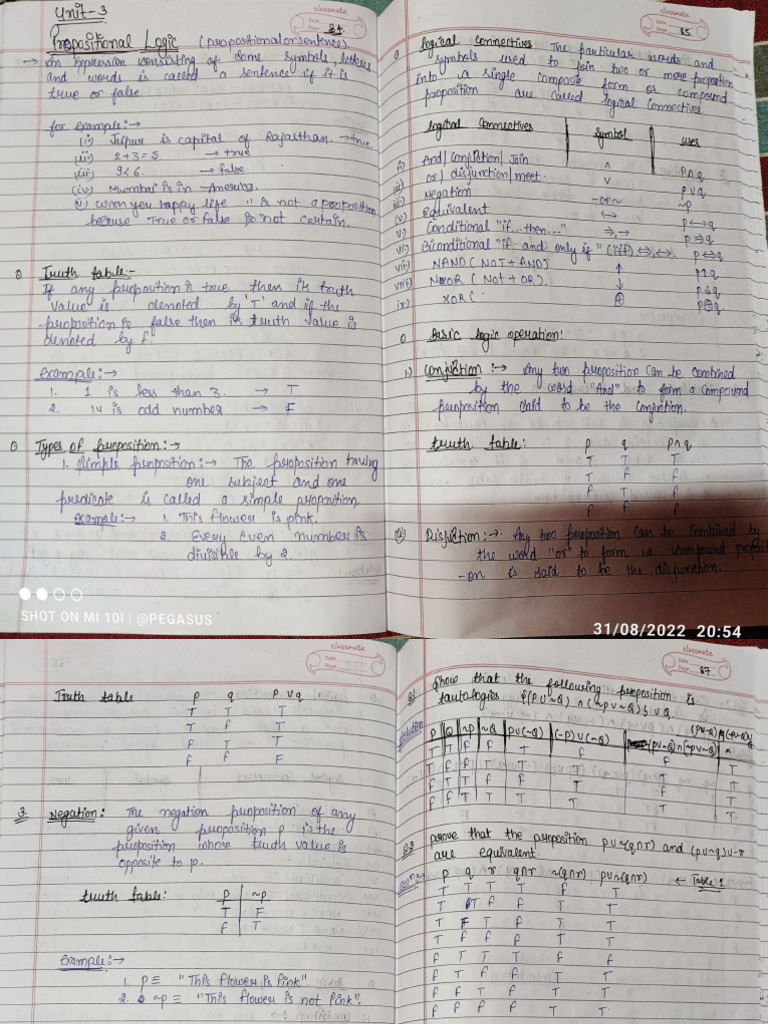 Unit-3
classmate
Date
Page 84
Propositional Logic (propositional or sentence)
→ An expression consisting of some symbols, letters
and words is called a sentence if it is
true or false.
for example:→
(i) Jaipur is capital of Rajasthan. → true
(ii) 2+3=5 → true
(iii) 9<6. → false
(iv) Mumbai is in America.
(v) wish you happy life " is not a proposition
because True or false is not certain.
Truth table:-
If any proposition is true then its truth
value is denoted by 'T' and if the
proposition is false then its truth value is
denoted by F.
Example:→
1. 1 is less than 3. → T
2. 14 is odd number → F
Types of proposition:→
1. Simple proposition:→ The proposition having
one subject and one
predicate is called a simple proposition.
example:→ 1. This flower is pink.
2. Every even number is
divisible by 2.
SHOT ON MI 10I | @PEGASUS
classmate
Date
Page 85
logical connectives The particular words and
symbols used to join two or more proposition
into a single composite form or compound
proposition are called logical connectives.
logical connectives symbol uses
i) And/conjution/Join ∧ p∧q
ii) or/disjunction/meet ∨ p∨q
iii) Negation ¬or~ ~p
iv) Equivalent ↔ p↔q
v) Conditional "if...then..." ⇒,→ p→q
vi) Biconditional "if and only if" (iff) ⇔,↔ p↔q
vii) NAND (NOT + AND) ↑ p↑q
viii) NOR (Not + OR). ↓ p↓q
ix) XOR( ⊕ p⊕q
Basic logic operation:
i) Conjution:→ Any two proposition can be combined
by the word "And" to form a compound
proposition said to be the conjution.
truth table: p q p∧q
T T T
T F F
F T F
F F F
(ii) Disjuction:→. Any two proposition can be combined by
the word "or" to form a compound propositi
-on is said to be the disjunction.
31/08/2022 20:54
classmate
Date
Page
Truth table p q p∨q
T T T
T F T
F T T
F F F
3. Negation: The negation proposition of any
given proposition p is the
proposition whose truth value is
opposite to p.
truth table: p ~p
T F
F T
Example:→
1. p≡ "This flower is Pink".
2. ~p≡ "This flower is not Pink".
classmate
Date
Page 87
Q1 Show that the following proposition is
tautologies {(P∪~Q) ∩ (~P∪~Q)} ∪ Q.
Solution
P Q ~P ~Q P∪(~Q) (~P)∪(~Q) (P∪~Q)∩(~P∪~Q)
T T F F T F F T
Q2 prove that the proposition p∪~(q∩r) and (p∪~q)∪~r
are equivalent.
p q r q∩r ~(q∩r) p∪~(q∩r) ← Table 1
T T T T F T
T T F F T T
T F T F T T
T F F F T T
F T T T F F
F T F F T T
F F T F T T
F F F F T T